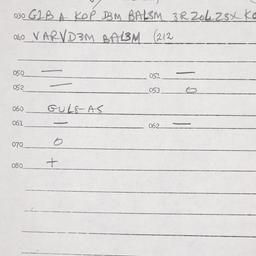 030 GIB A KOP JBM BALSM 3R
040 VARVD3M BALBM (212
050 — 051 —
052 — 053 O
060 GULF-AS
061 — 062 —
070 O
080 +